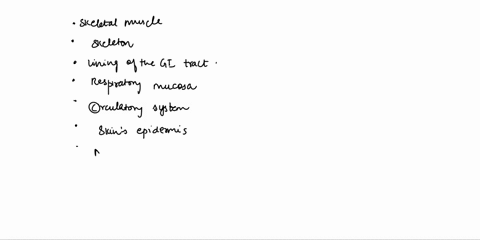 • Skeletal muscle
• Skeleton
• Lining of the GI tract.
• Respiratory mucosa
• Circulatory system
• Skin's epidermis
•